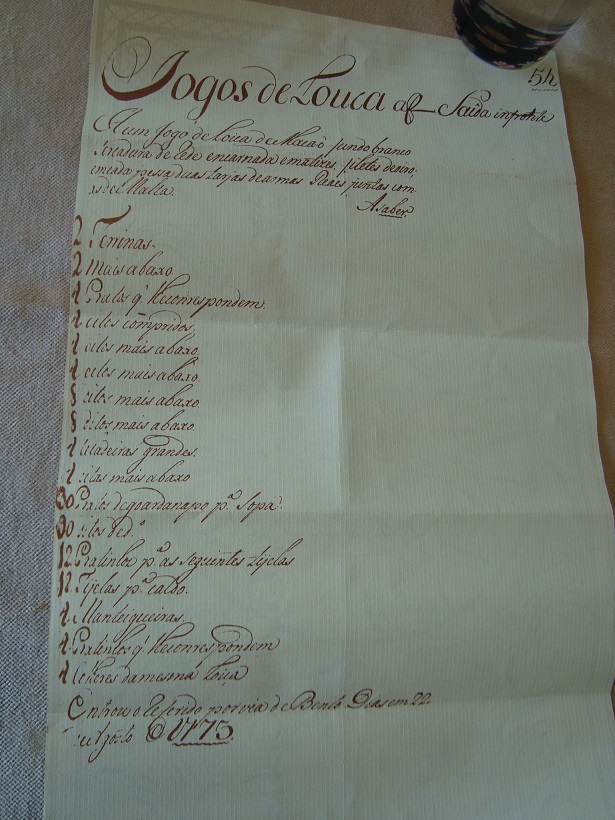 54
Jogos de Louca Saida
A um Jogo de Loica de Macao fundo branco
encarnada e matizes, filetes de oiro
duas tarjas de armas Reaes juntas com
as de Malta.
A saber
2 Terrinas
2 Mais abaxo
4 Pratos q. lhe correspondem
4 ditos compridos
4 ditos mais abaxo
4 ditos mais abaxo
8 ditos mais abaxo
8 ditos mais abaxo
4 grandes
4 ditas mais abaxo
Pratos de goardanapo p.ª Sopa
ditos de
12 Pratinhos p.ª as seguintes tijelas
12 Tijelas p.ª caldo
4 Manteigueiras
4 Pratinhos q. lhe correspondem
4 da mesma Loiça
Entrou o referido por via de Bento Dias em 22
de Agosto